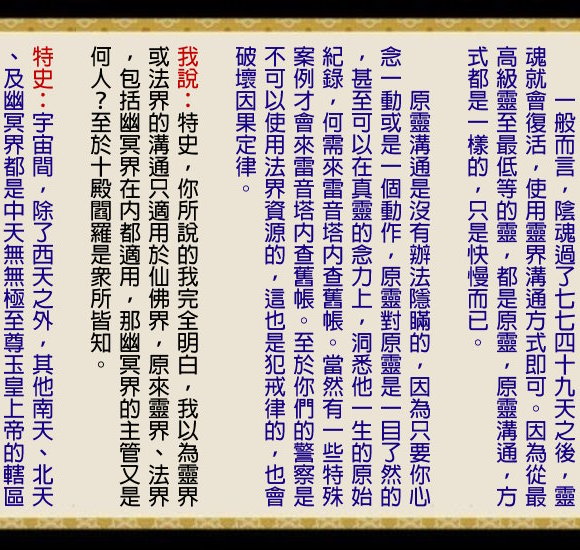 一般而言，陰魂過了七七四十九天之後，靈
魂就會復活，使用靈界溝通方式即可。因為從最
高級靈至最低等的靈，都是原靈，原靈溝通，方
式都是一樣的，只是快慢而已。
原靈溝通是沒有辦法隱瞞的，因為只要你心
念一動或是一個動作，原靈對原靈是一目了然的
，甚至可以在真靈的念力上，洞悉他一生的原始
紀錄，何需來雷音塔內查舊帳。當然有一些特殊
案例才會來雷音塔內查舊帳。至於你們的警察是
不可以使用法界資源的，這也是犯戒律的，也會
破壞因果定律。
我說：特史，你所說的我完全明白，我以為靈界
或法界的溝通只適用於仙佛界，原來靈界、法界
，包括幽冥界在內都適用，那幽冥界的主管又是
何人？至於十殿閻羅是衆所皆知。
特史：宇宙間，除了西天之外，其他南天、北天
、及幽冥界都是中天無無極至尊玉皇上帝的轄區